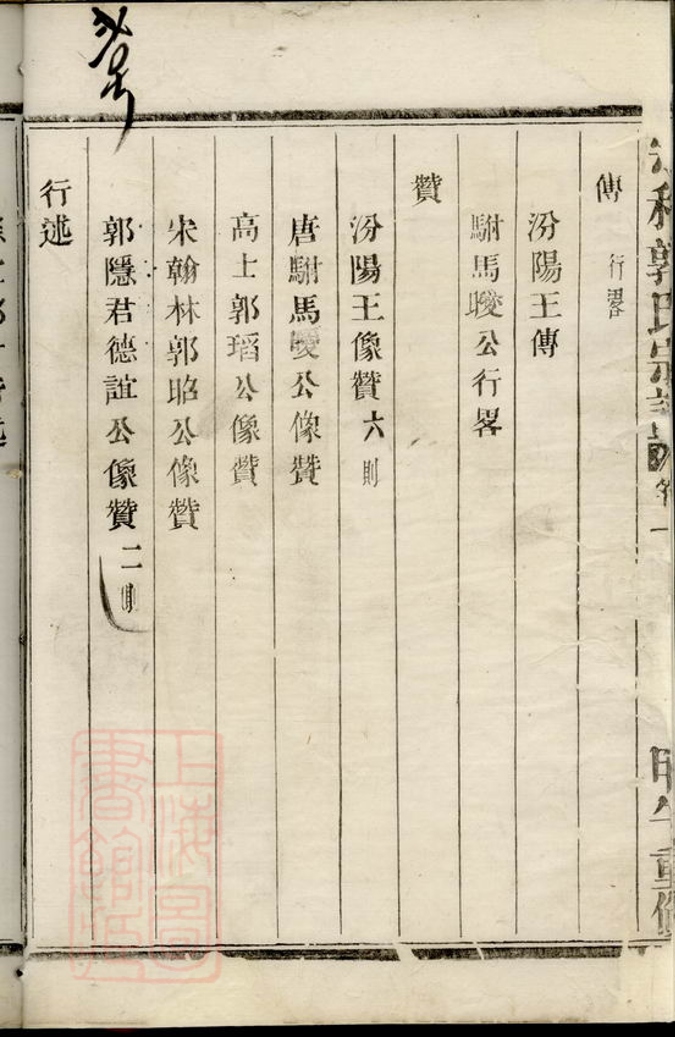 郭氏宗譜 卷一
重修
傳 行畧
汾陽王傳
駙馬曖公行畧
贊
汾陽王像贊 六則
唐駙馬曖公像贊
高士郭瑫公像贊
宋翰林郭昭公像贊
郭隱君德誼公像贊 二則
行述
上海圖書館藏